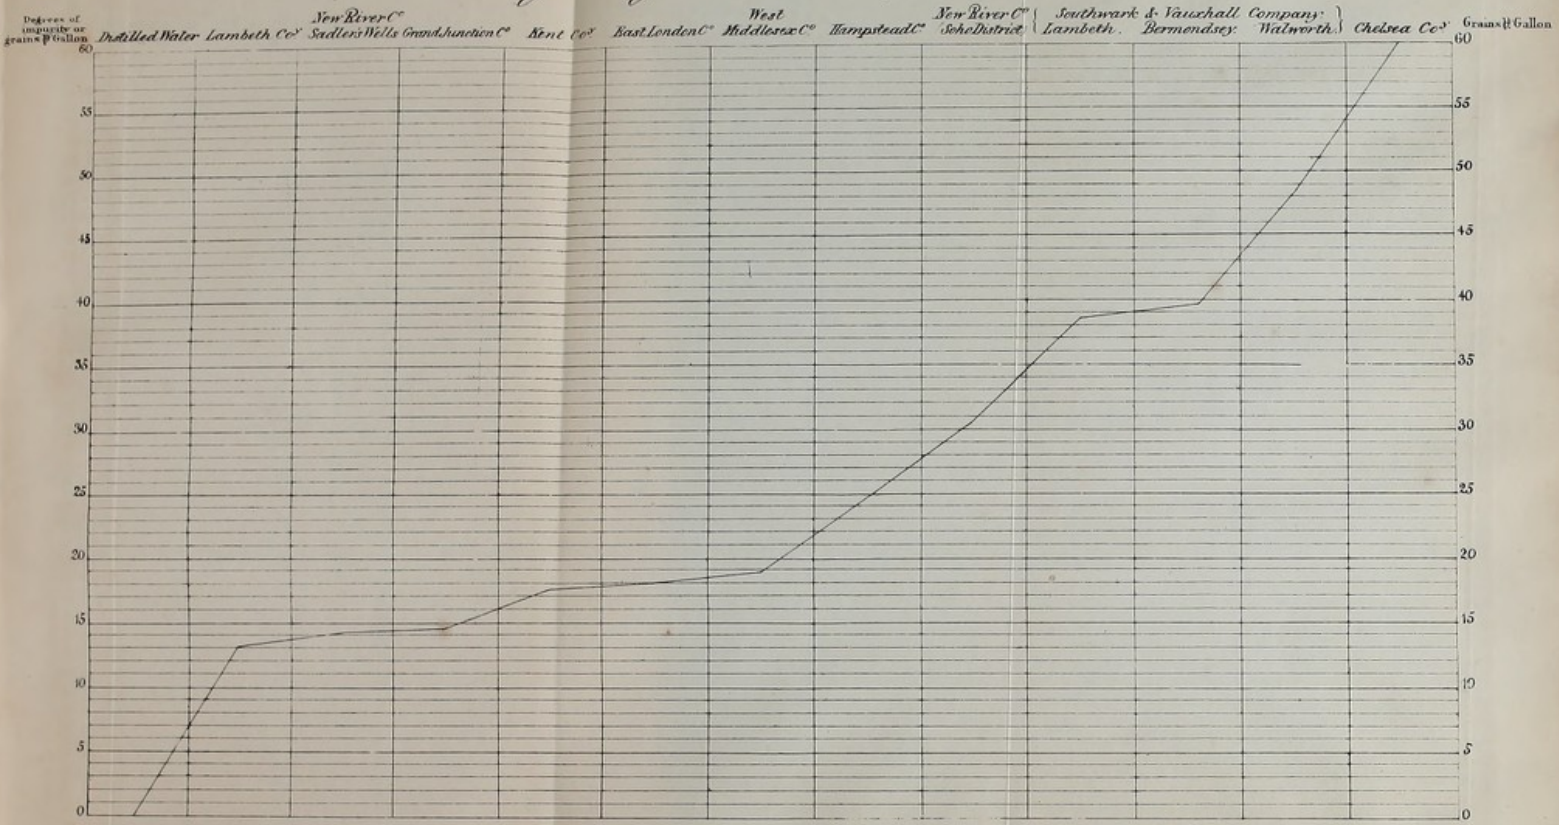 Degrees of
impurity or
grains ℔ Gallon
Distilled Water
Lambeth Coy
New River Co
Sadler's Wells
Grand Junction Co
Kent Coy
East London Co
West
Middlesex Co
Hampstead Co
New River Co
Soho District
Southwark & Vauxhall Company
Lambeth.
Bermondsey.
Walworth.
Chelsea Coy
Grains ℔ Gallon
60
55
50
45
40
35
30
25
20
15
10
5
0
60
55
50
45
40
35
30
25
20
15
10
5
0